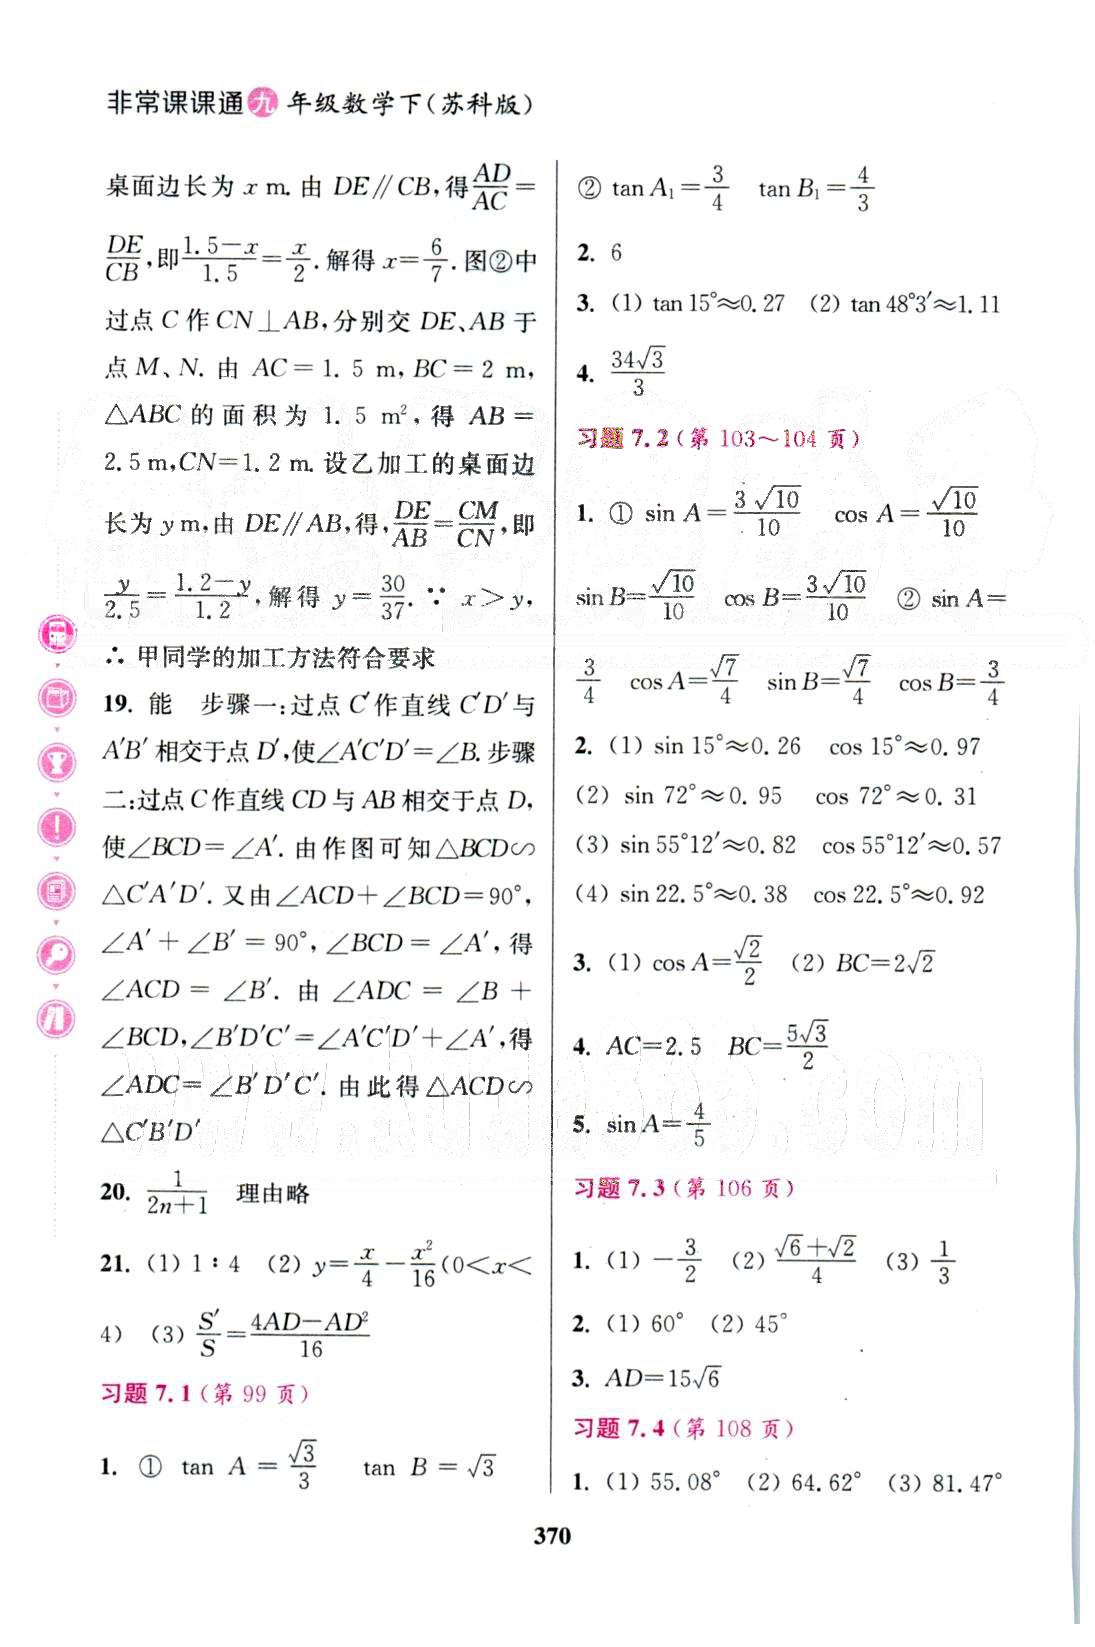 非常课课通九年级数学下(苏科版)
桌面边长为 x m. 由 DE∥CB,得AD/AC=
DE/CB,即(1.5-x)/1.5=x/2.解得 x=6/7.图②中
过点 C 作 CN⊥AB,分别交 DE、AB 于
点 M、N. 由 AC=1.5 m, BC=2 m,
△ABC 的面积为 1.5 m²,得 AB=
2.5 m,CN=1.2 m. 设乙加工的桌面边
长为 y m,由 DE∥AB,得,DE/AB=CM/CN,即
y/2.5=(1.2-y)/1.2,解得 y=30/37.∵ x>y,
∴ 甲同学的加工方法符合要求
19. 能 步骤一:过点 C′作直线 C′D′与
A′B′相交于点 D′,使∠A′C′D′=∠B.步骤
二:过点 C 作直线 CD 与 AB 相交于点 D,
使∠BCD=∠A′.由作图可知△BCD∽
△C′A′D′.又由∠ACD+∠BCD=90°,
∠A′+∠B′=90°,∠BCD=∠A′,得
∠ACD=∠B′.由∠ADC=∠B+
∠BCD,∠B′D′C′=∠A′C′D′+∠A′,得
∠ADC=∠B′D′C′.由此得△ACD∽
△C′B′D′
20. 1/(2n+1) 理由略
21. (1) 1∶4 (2) y=x/4-x²/16(0<x<
4) (3) S′/S=(4AD-AD²)/16
习题7.1(第 99 页)
1. ① tan A=√3/3 tan B=√3
② tan A₁=3/4 tan B₁=4/3
2. 6
3. (1) tan 15°≈0.27 (2) tan 48°3′≈1.11
4. 34√3/3
习题7.2(第 103～104 页)
1. ① sin A=3√10/10 cos A=√10/10
sin B=√10/10 cos B=3√10/10 ② sin A=
3/4 cos A=√7/4 sin B=√7/4 cos B=3/4
2. (1) sin 15°≈0.26 cos 15°≈0.97
(2) sin 72°≈0.95 cos 72°≈0.31
(3) sin 55°12′≈0.82 cos 55°12′≈0.57
(4) sin 22.5°≈0.38 cos 22.5°≈0.92
3. (1) cos A=√2/2 (2) BC=2√2
4. AC=2.5 BC=5√3/2
5. sin A=4/5
习题7.3(第 106 页)
1. (1) -3/2 (2) (√6+√2)/4 (3) 1/3
2. (1) 60° (2) 45°
3. AD=15√6
习题7.4(第 108 页)
1. (1) 55.08° (2) 64.62° (3) 81.47°
370